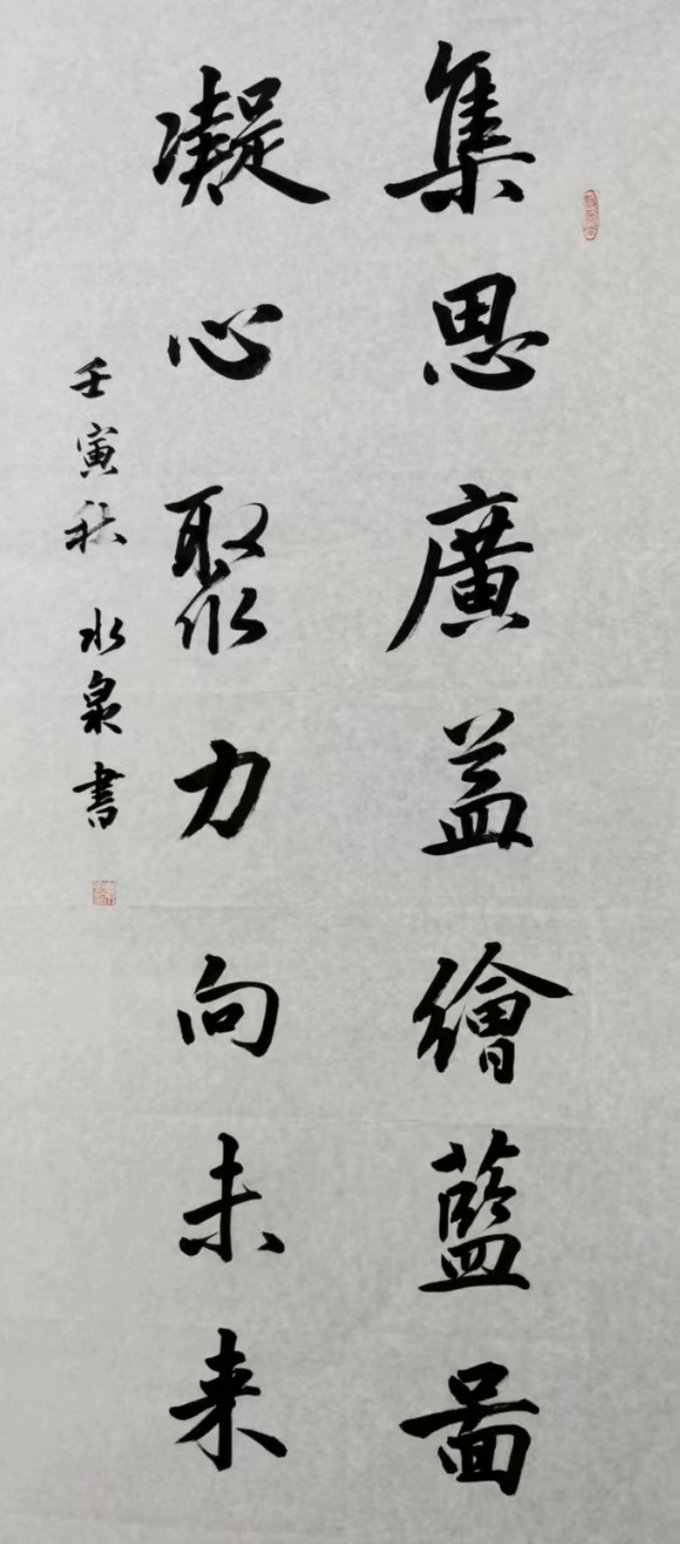 集思廣益繪藍啚
凝心聚力向未来
壬寅秋 水泉書